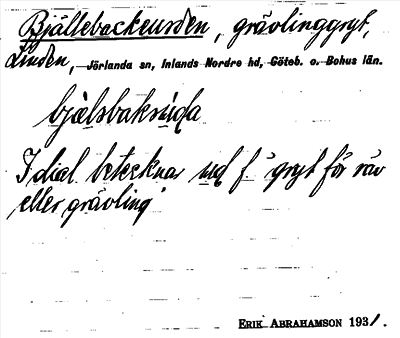 Bjällebackeurden, grävlinggryt,
Linden, Jörlanda sn, Inlands Nordre hd, Göteb. o. Bohus län.
bjælsbaksu̇ḍa
I dial. betecknar uḍ f. "gryt för räv
eller grävling"
ERIK ABRAHAMSON 1931.